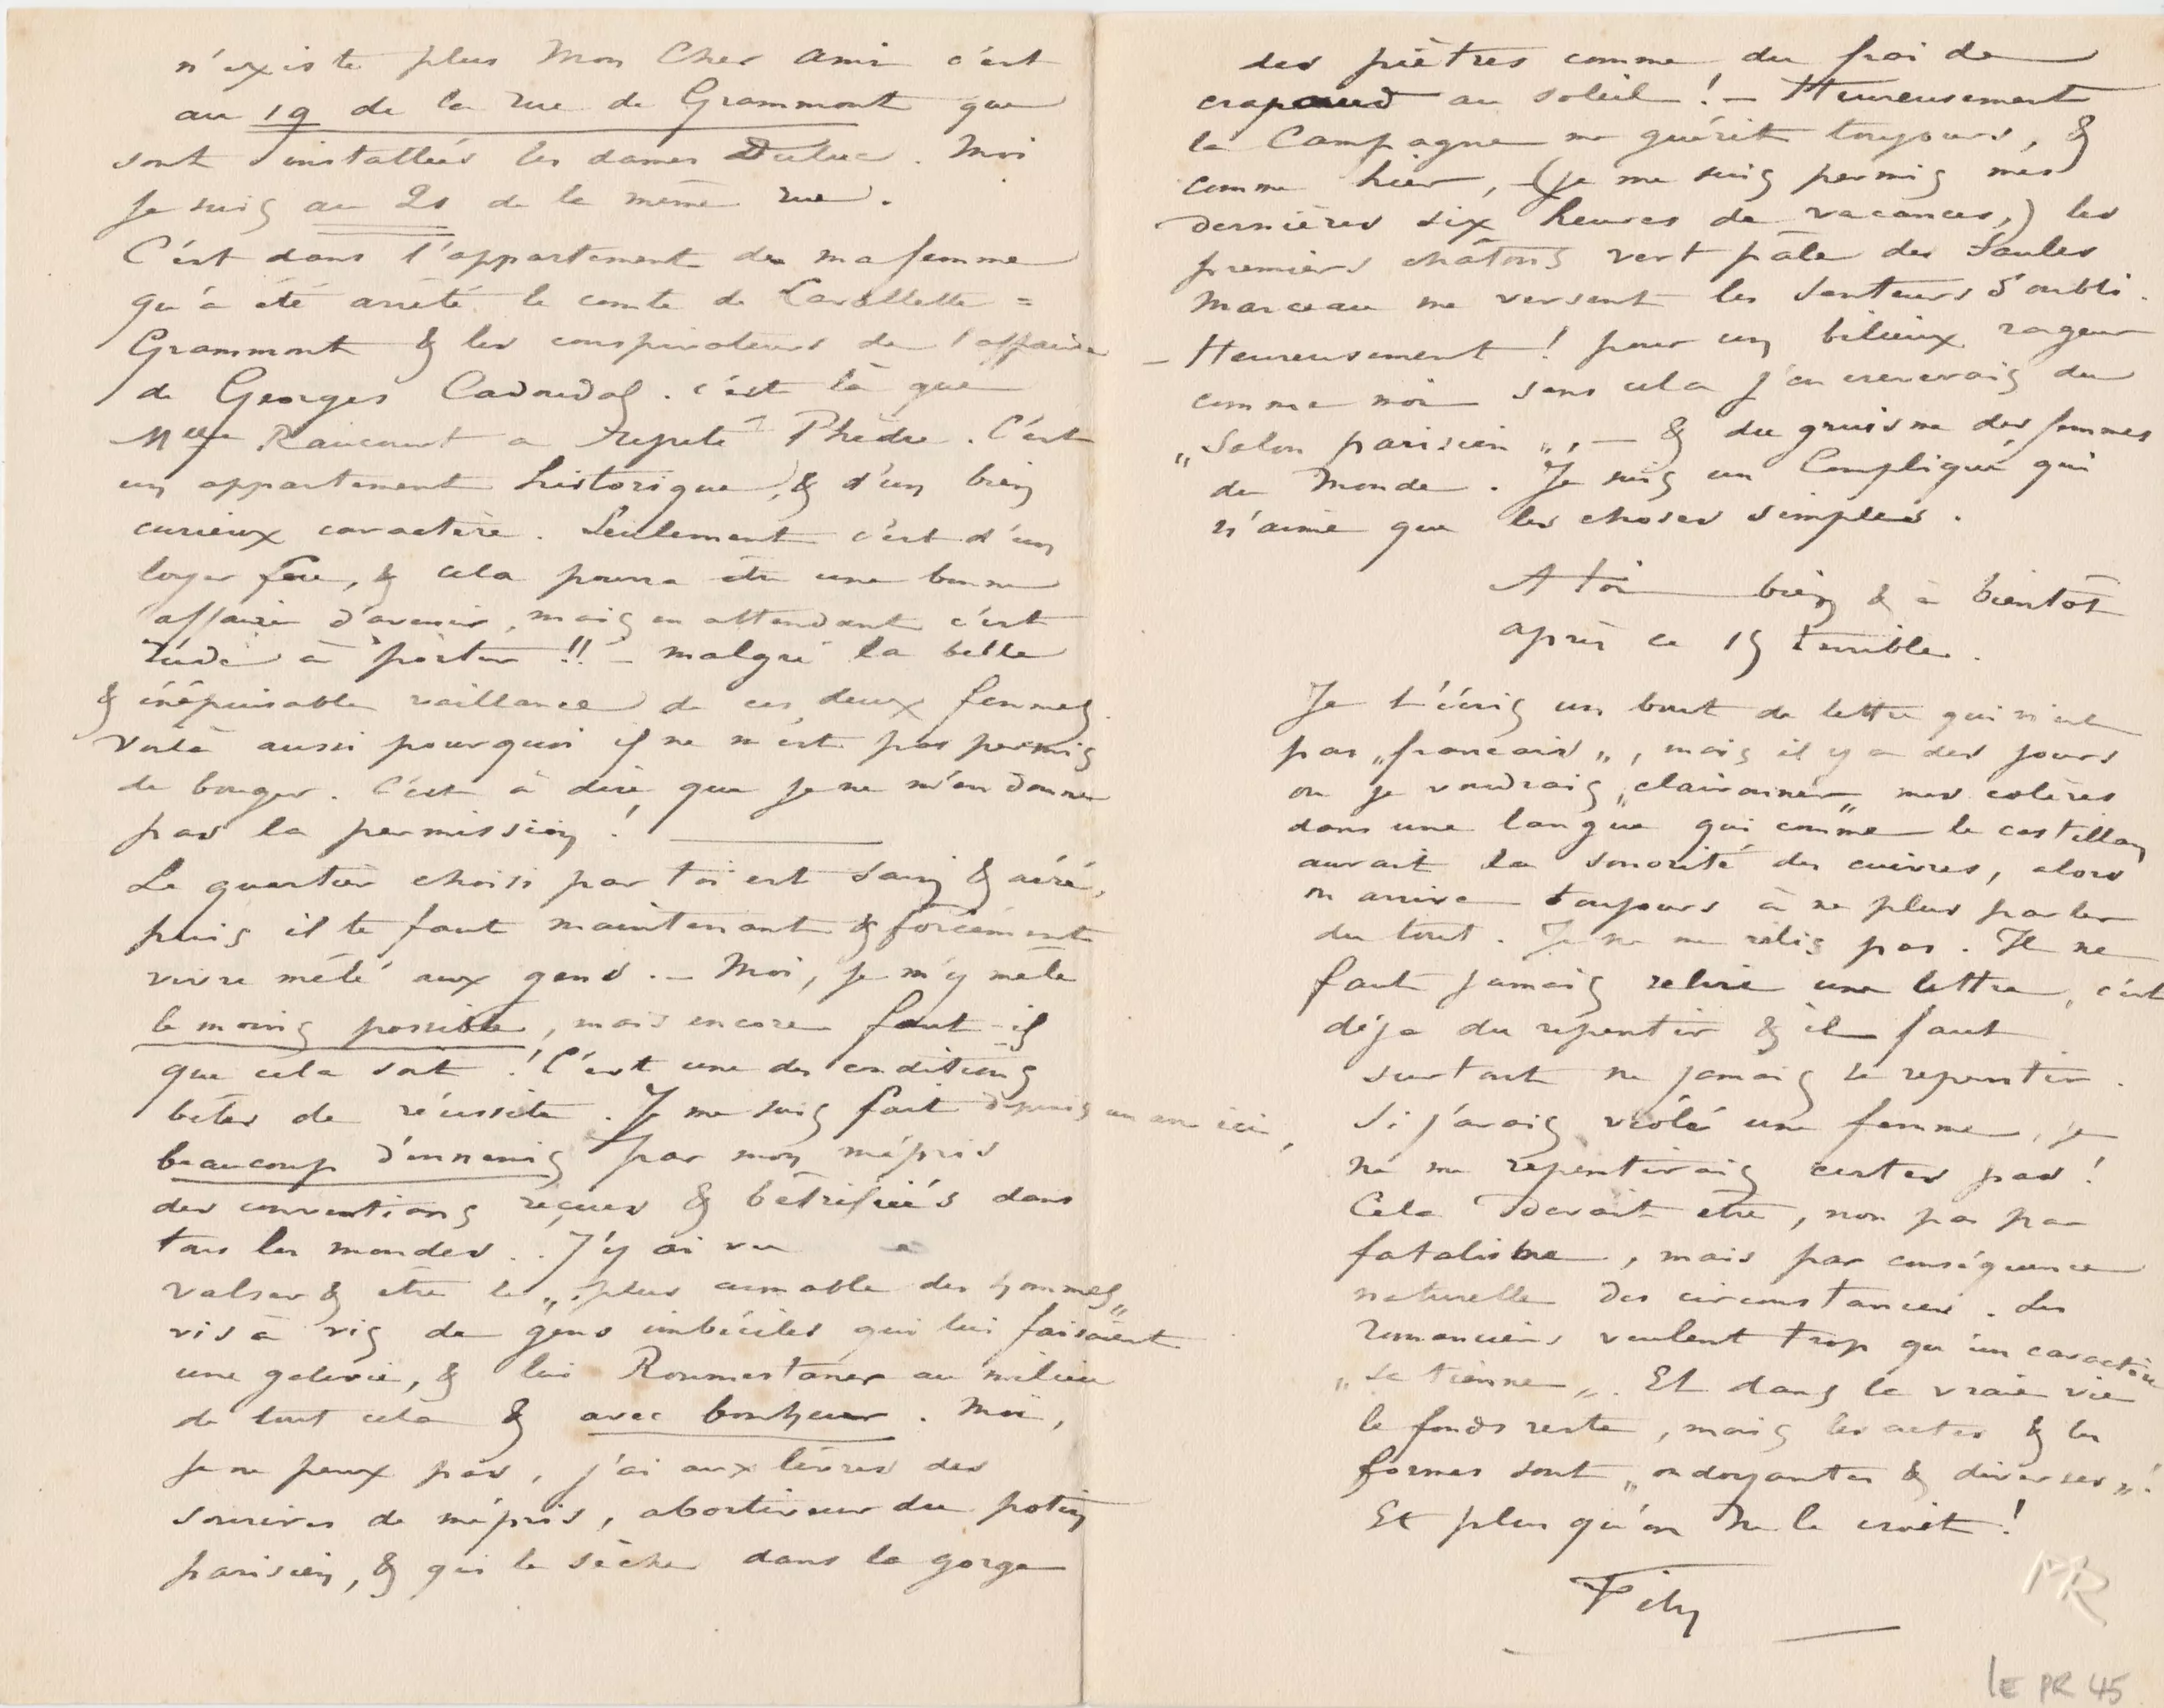 n'existe plus Mon Cher Ami c'est
au 19 de la rue de Grammont que
sont installées les dames Duluc. Moi
je suis au 21 de la même rue.
C'est dans l'appartement de ma femme
qu'a été arrêté le comte de Lavallette =
Grammont & les conspirateurs de l'affaire
de Georges Cadoudal. c'est là que
Melle Raucourt a répété Phèdre. C'est
un appartement historique, & d'un bien
curieux caractère. Seulement c'est d'un
loyer fou, & cela pourra être une bonne
affaire d'avenir, mais en attendant c'est
rude à porter !! – malgré la belle
& inépuisable vaillance de ces deux femmes.
Voilà aussi pourquoi il ne m'est pas permis
de bouger. C'est à dire que je ne m'en donne
pas la permission !
Le quartier choisi par toi est sain & aéré,
puis il te faut maintenant & forcément
vivre mêlé aux gens. – Moi, je m'y mêle
le moins possible, mais encore faut-il
que cela soit ! C'est une des conditions
bêtes de réussite. Je me suis fait depuis un an ici,
beaucoup d'ennemis par mon mépris
des conventions reçues & bêtifiées dans
tous les mondes.. J'y ai vu
valser & être le „plus aimable des hommes„
vis à vis de gens imbéciles qui lui faisaient
une galerie, & lui Roumestaner au milieu
de tout cela & avec bonheur. Moi,
je ne peux pas, j'ai aux lèvres des
sourires de mépris, abortiveur du potin
parisien, & qui le sèche dans la gorge
des piètres comme du frai de
crapaud au soleil ! – Heureusement
la Campagne me guérit toujours, &
comme hier, (je me suis permis mes
dernières six heures de vacances,) les
premiers châtons vert pâle des Saules
Marceau me versent les senteurs d'oubli.
– Heureusement ! pour un bilieux rageur
comme moi sans cela j'en creverais du
„Salon parisien„, – & du gruisme des femmes
du Monde. Je suis un Compliqué qui
n'aime que les choses simples.
A toi bien & à bientôt
après ce 15 terrible.
Je t'écris un bout de lettre qui n'est
pas „français„, mais il y a des jours
où je voudrais „claironner„ mes colères
dans une langue qui comme le castillan
aurait la sonorité des cuivres, alors
on arrive toujours à ne plus parler
du tout. Je ne me relis pas. Il ne
faut jamais relire une lettre, c'est
déja du repentir & il faut
surtout ne jamais se repentir.
Si j'avais violé une femme, je
ne me repentirais certes pas !
Cela devait être, non pas par
fatalisme, mais par conséquence
naturelle des circonstances. Les
romanciers veulent trop qu'un caractère
„se tienne„. Et dans la vraie vie
le fonds reste, mais les actes & les
formes sont „ondoyantes & diverses„!
Et plus qu'on ne le croit !
Fély
PR
LE PR 45